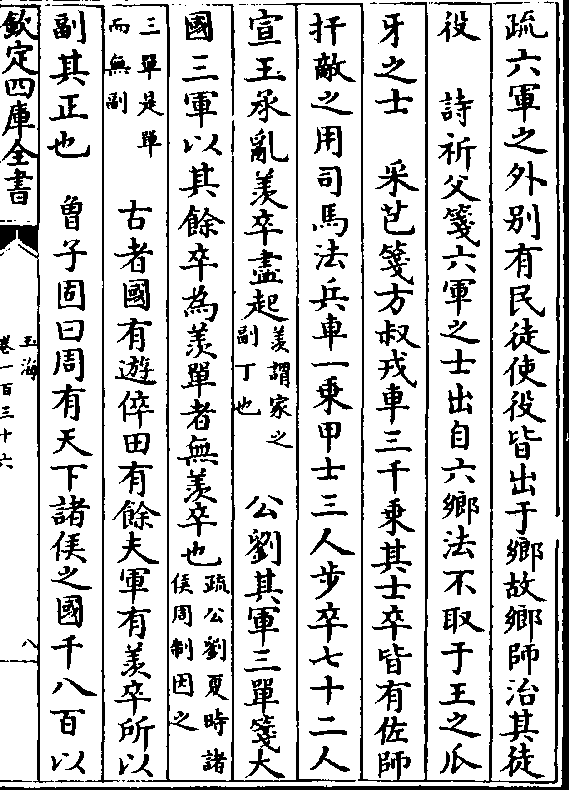 疏六軍之外别有民徒使役皆出于鄉故鄉師治其徒
役　詩祈父箋六軍之士出自六鄉法不取于王之爪
牙之士　采芑箋方叔戎車三千乘其士卒皆有佐師
扞敵之用司馬法兵車一乘甲士三人步卒七十二人
宣王承亂羡卒盡起羡謂家之副丁也　公劉其軍三單箋大
國三軍以其餘卒為羡單者無羡卒也疏公劉夏時諸侯周制因之
三單是單而無副　古者國有遊倅田有餘夫軍有羡卒所以
副其正也　曾子固曰周有天下諸侯之國千八百以
欽定四庫全書
玉海
卷一百三十六
八